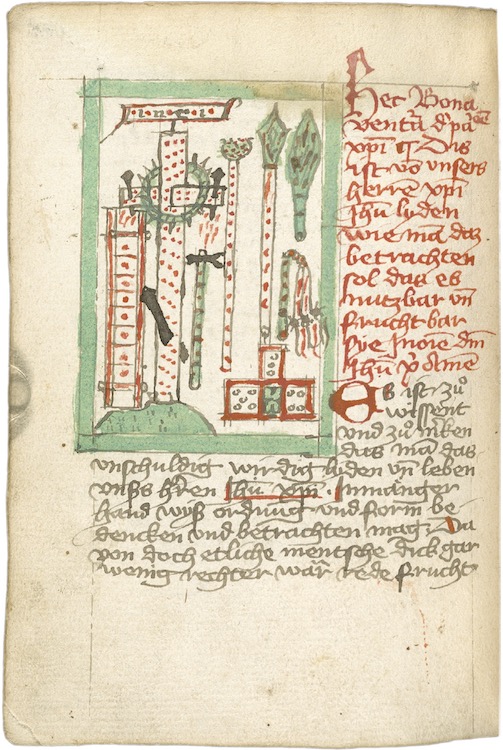 inri
Hec Bona
ventura de passione
xpi Das
ist von unsers
herren xpi
ihu lyden
wie man daz
betrachten
sol das es
nutzbar un
fruchtbar
sye Inoie dni
ihu xp Amen
Es ist zu
wissent
und zu
das man das
unschuldig wirdig liden un leben
unsers hren ihu xpi Inmanger
hand wyß ordnung und form be
dencken und betrachten mag Da
von doch etliche mentsche dick gar
wenig rechter warer rede frucht